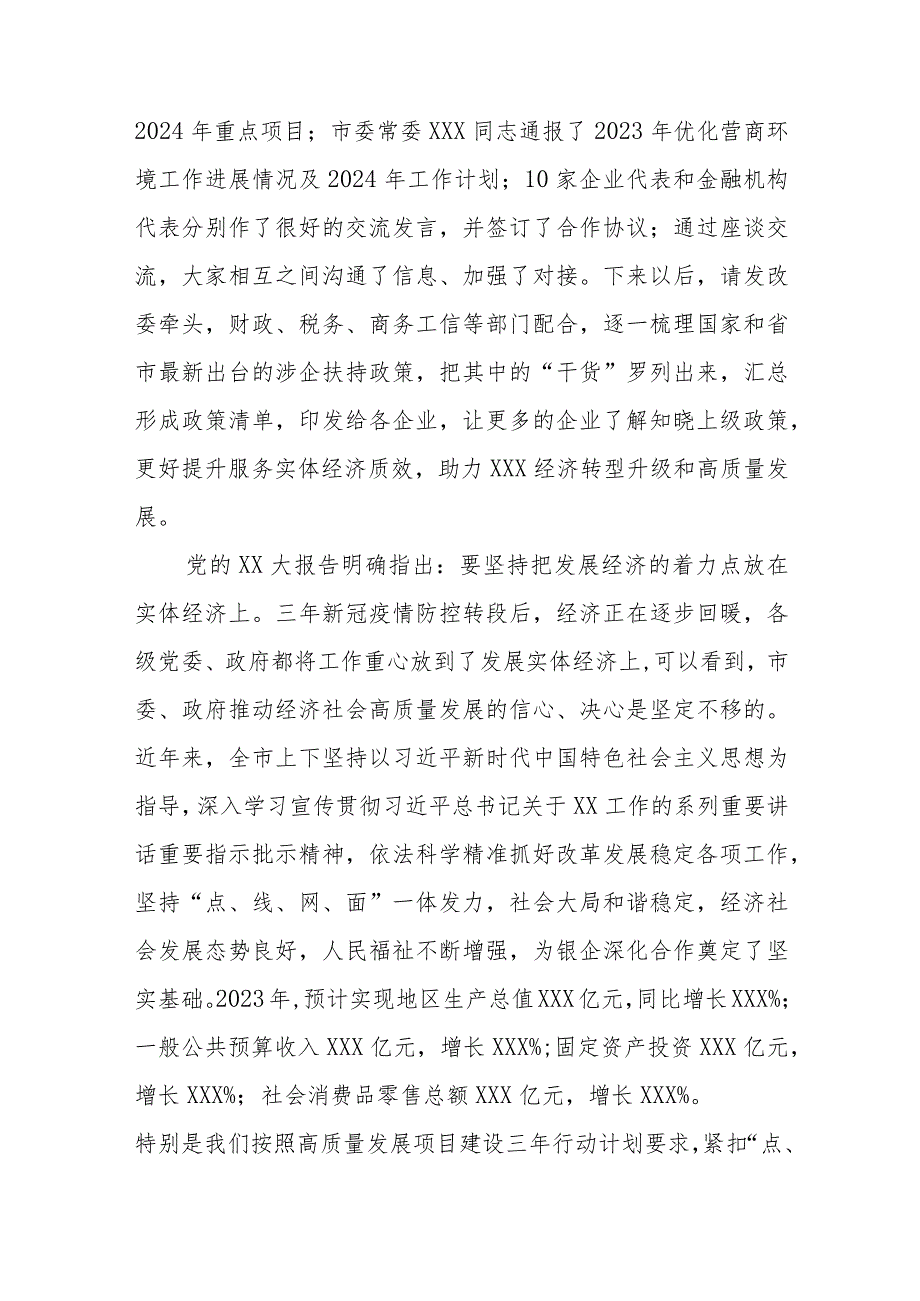 2024 年重点项目；市委常委 XXX 同志通报了 2023 年优化营商环
境工作进展情况及 2024 年工作计划；10 家企业代表和金融机构
代表分别作了很好的交流发言，并签订了合作协议；通过座谈交
流，大家相互之间沟通了信息、加强了对接。下来以后，请发改
委牵头，财政、税务、商务工信等部门配合，逐一梳理国家和省
市最新出台的涉企扶持政策，把其中的“干货”罗列出来，汇总
形成政策清单，印发给各企业，让更多的企业了解知晓上级政策，
更好提升服务实体经济质效，助力 XXX 经济转型升级和高质量发
展。
党的 XX 大报告明确指出：要坚持把发展经济的着力点放在
实体经济上。三年新冠疫情防控转段后，经济正在逐步回暖，各
级党委、政府都将工作重心放到了发展实体经济上,可以看到，市
委、政府推动经济社会高质量发展的信心、决心是坚定不移的。
近年来，全市上下坚持以习近平新时代中国特色社会主义思想为
指导,深入学习宣传贯彻习近平总书记关于 XX 工作的系列重要讲
话重要指示批示精神，依法科学精准抓好改革发展稳定各项工作，
坚持“点、线、网、面”一体发力，社会大局和谐稳定，经济社
会发展态势良好，人民福祉不断增强，为银企深化合作奠定了坚
实基础。2023 年,预计实现地区生产总值 XXX 亿元,同比增长 XXX%；
一般公共预算收入 XXX 亿元，增长 XXX%;固定资产投资 XXX 亿元，
增长 XXX%；社会消费品零售总额 XXX 亿元，增长 XXX%。
特别是我们按照高质量发展项目建设三年行动计划要求,紧扣“点、